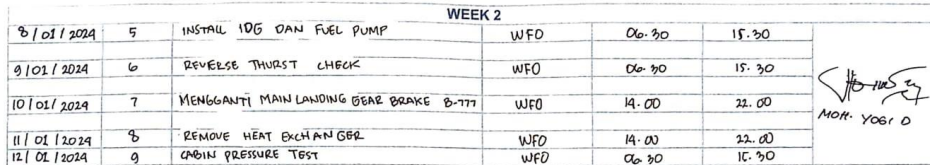 WEEK 2
8/01/2024 5 INSTALL IDG DAN FUEL PUMP WFO 06.30 15.30
9/01/2024 6 REVERSE THURST CHECK WFO 06.30 15.30
10/01/2024 7 MENGGANTI MAIN LANDING GEAR BRAKE B-777 WFO 14.00 22.00
MOH. YOGI D
11/01/2024 8 REMOVE HEAT EXCHANGER WFO 14.00 22.00
12/01/2024 9 CABIN PRESSURE TEST WFO 06.30 15.30